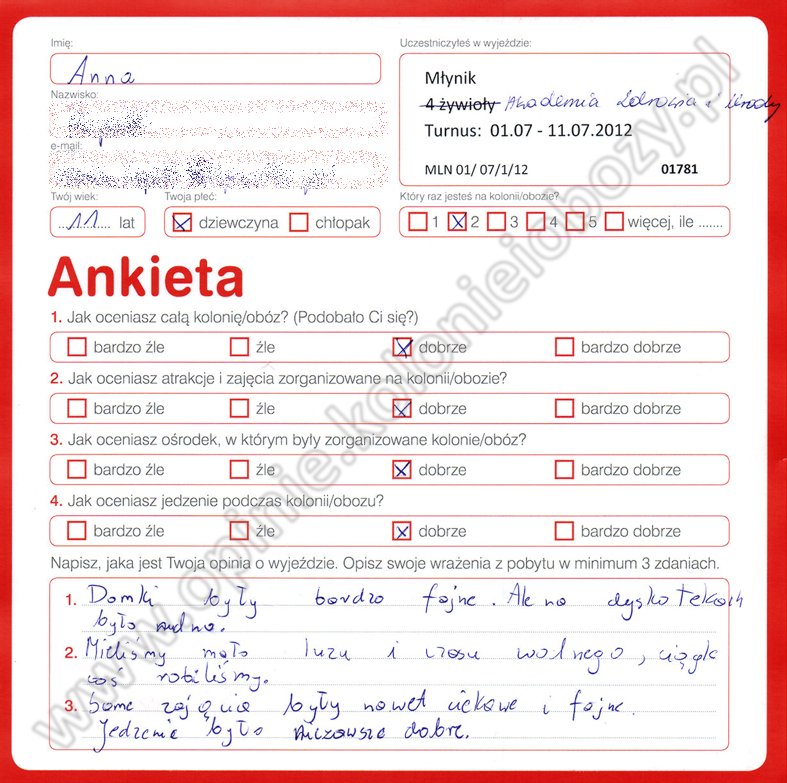 Imię:
Anna
Nazwisko:
e-mail:
Uczestniczyłeś w wyjeździe:
Młynik
4 żywioły Akademia Zdrowia i Urody
Turnus: 01.07 - 11.07.2012
MLN 01/ 07/1/12 01781
Twój wiek: Twoja płeć:
11 lat dziewczyna chłopak
Który raz jesteś na kolonii/obozie?
1 2 3 4 5 więcej, ile .......
Ankieta
1. Jak oceniasz całą kolonię/obóz? (Podobało Ci się?)
bardzo źle źle dobrze bardzo dobrze
2. Jak oceniasz atrakcje i zajęcia zorganizowane na kolonii/obozie?
bardzo źle źle dobrze bardzo dobrze
3. Jak oceniasz ośrodek, w którym byly zorganizowane kolonie/obóz?
bardzo źle źle dobrze bardzo dobrze
4. Jak oceniasz jedzenie podczas kolonii/obozu?
bardzo źle źle dobrze bardzo dobrze
Napisz, jaka jest Twoja opinia o wyjeździe. Opisz swoje wrażenia z pobytu w minimum 3 zdaniach.
1. Domki były bardzo fajne. Ale na dyskotekach
było nudno.
2. Mieliśmy mało luzu i czasu wolnego, ciągle
coś robiliśmy.
3. Same zajęcia były nawet ciekawe i fajne.
Jedzenie było dobre.
www.opinie.kolonieiobozy.pl